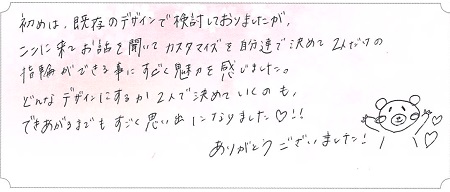 初めは、既存のデザインで検討しておりましたが、
ここに来てお話を聞いてカスタマイズを自分達で決めて2人だけの
指輪ができる事にすごく魅力を感じました。
どんなデザインにするか2人で決めていくのも、
できあがるまでもすごく思い出になりました♡!!
ありがとうございました!